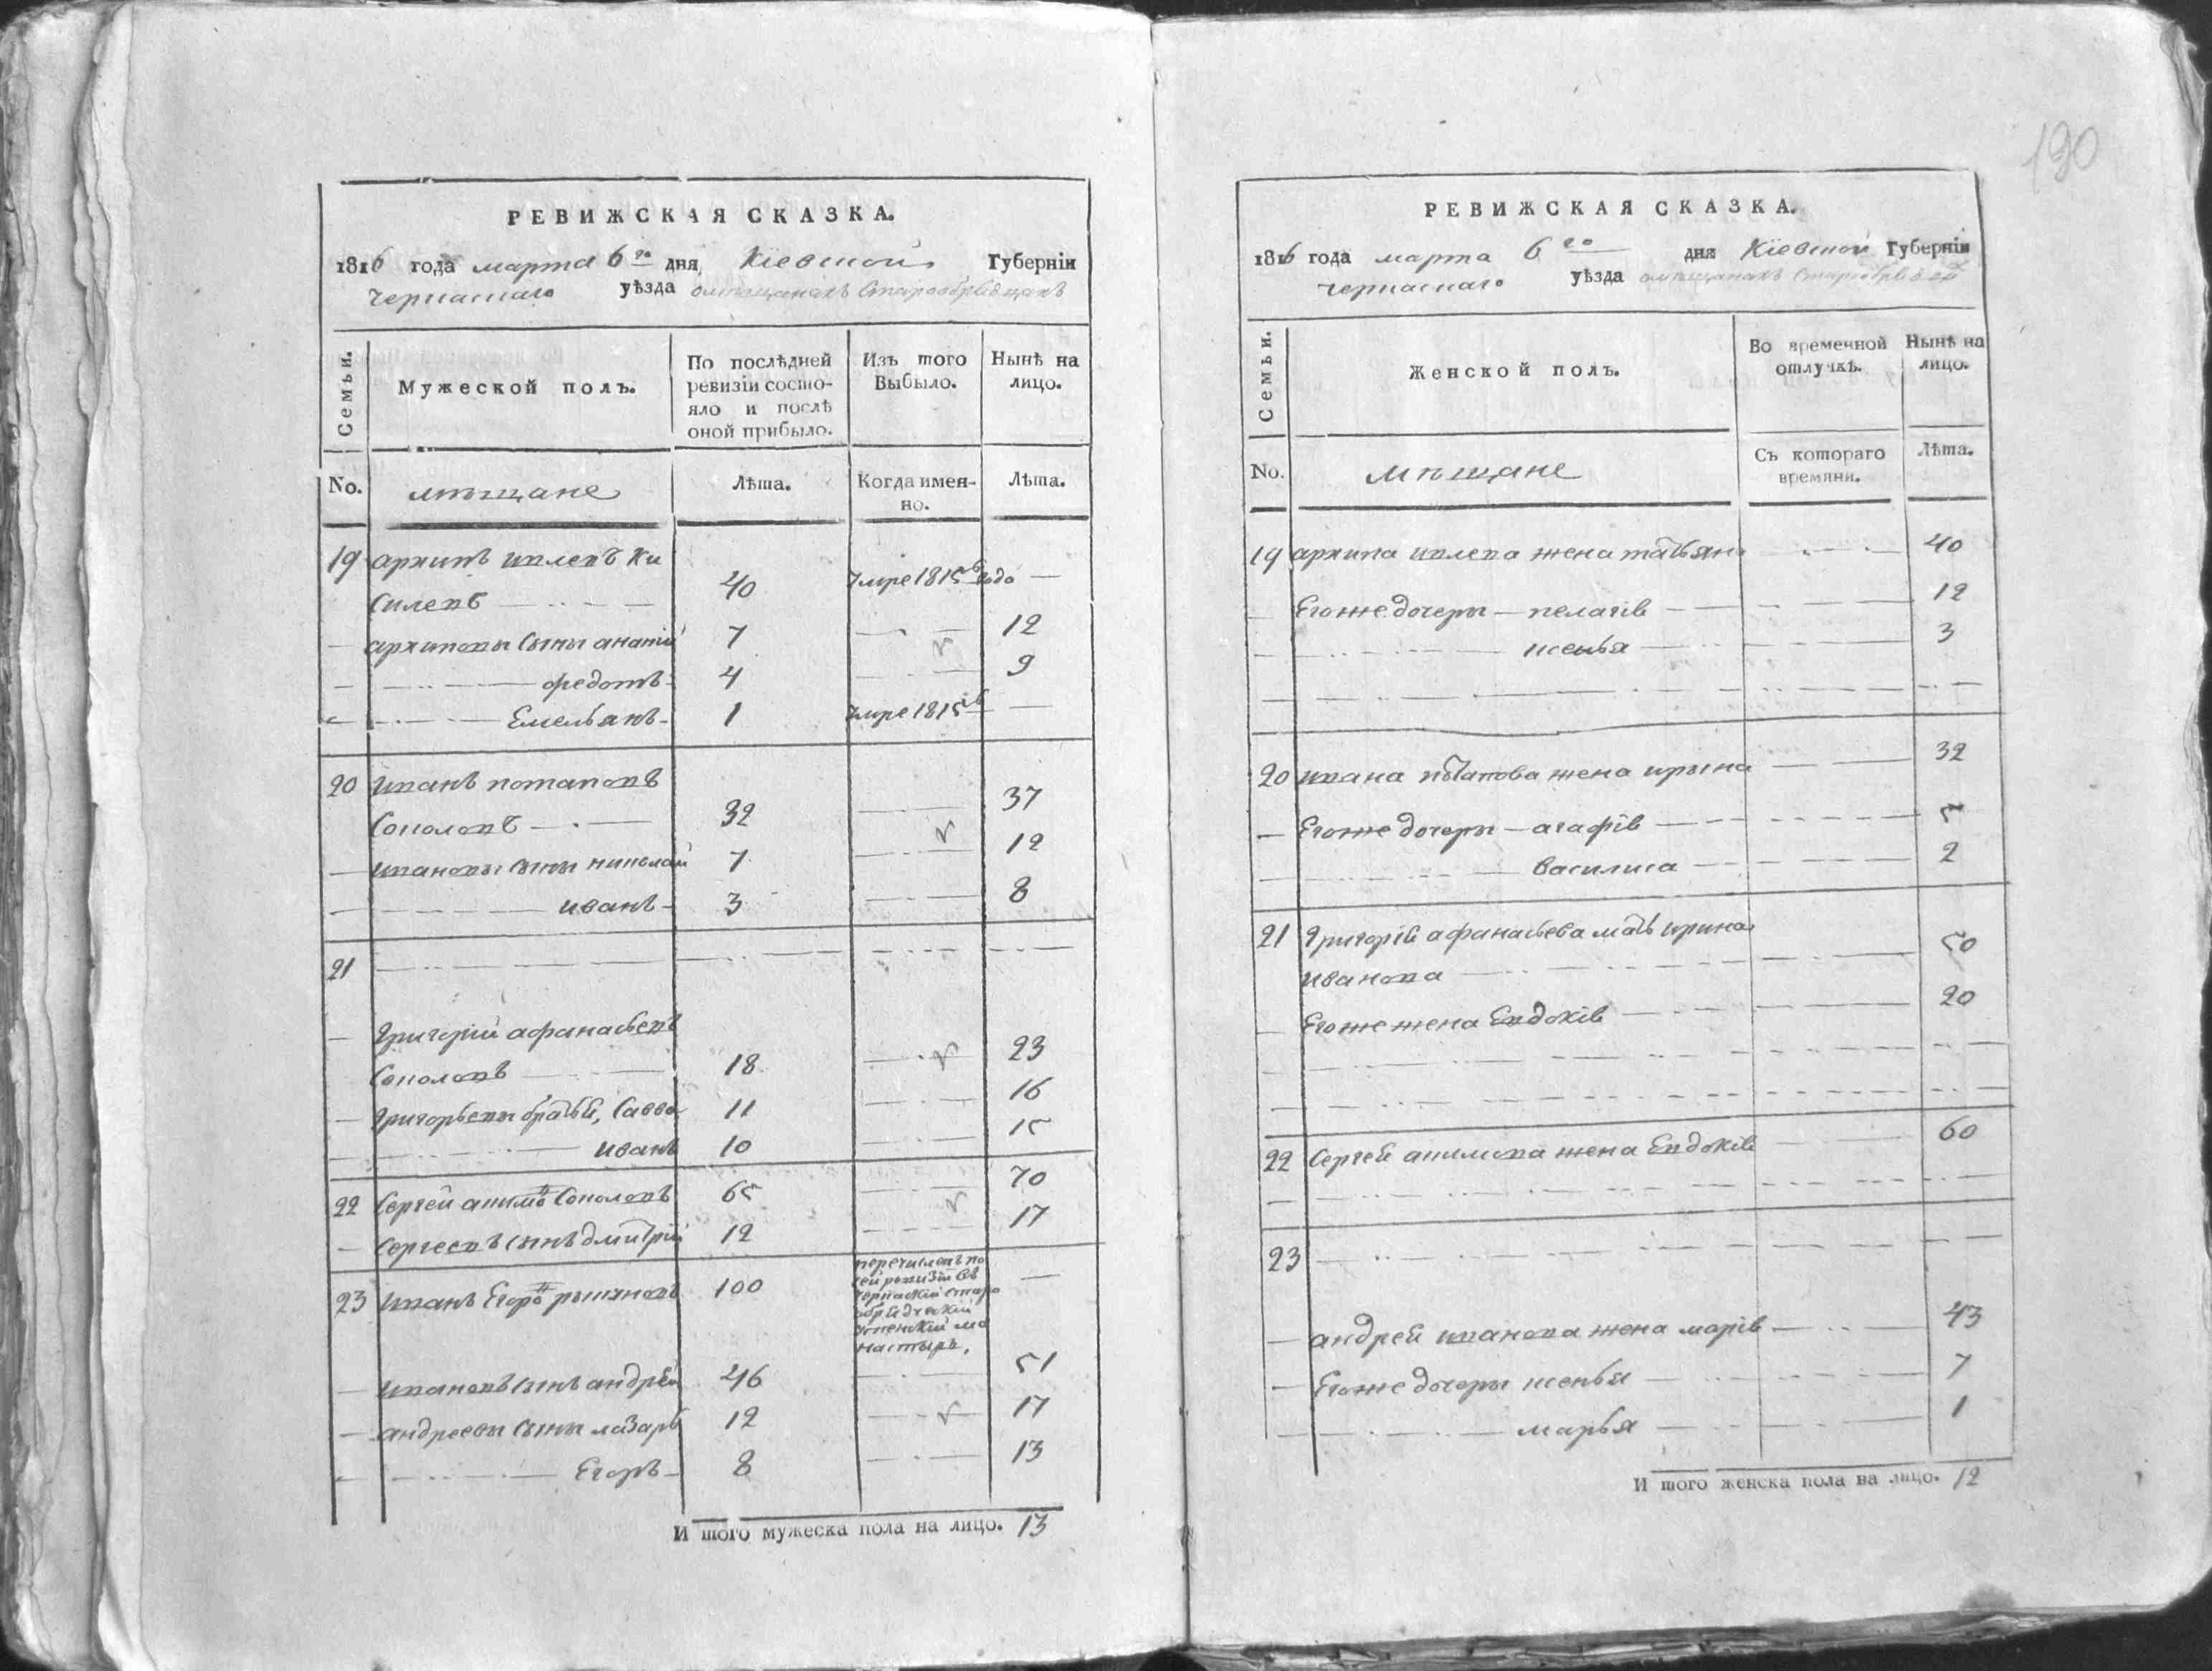 190
РЕВИЖСКАЯ СКАЗКА.
1816 года марта 6го дня Кіевской Губерніи
черкаскаго уѣзда омещанахъ Старообрядцахъ
Семьи.
Мужеской полъ.
По послѣдней ревизіи состояло и послѣ оной прибыло.
Изъ того Выбыло.
Нынѣ на лицо.
No. мѣщане Лѣта. Когда именно. Лѣта.
19 архипъ
40 Умре 1815 года —
архиповы Сыны 7 12
федотъ 4 9
Емельянъ 1 Умре 1815 —
20 иванъ потаповъ
Соколовъ 32 37
ивановы сыны николай 7 12
иванъ 3 8
21
Григорій афанасьевъ
Соколовъ 18 23
Григорьевы братья, Савва 11 16
иванъ 10 15
22 Сергей акимо Соколовъ 65 70
Сергеевъ сынъ дмитрій 12 17
23 иванъ Егоро 100 перечисленъ по
сей ревизіи въ
черкаскій старо
обрядческій
успенскій мо
настырь,
ивановъ сынъ андрей 46 51
андреевы сыны лазарь 12 17
Егоръ 8 13
И того мужеска пола на лицо. 13
РЕВИЖСКАЯ СКАЗКА.
1816 года марта 6го дня Кіевской Губерніи
черкаскаго уѣзда омещанахъ
Семьи.
Женской полъ.
Во временной отлучкѣ.
Нынѣ на лицо.
No. мѣщане Съ котораго времяни. Лѣта.
19 архипа жена татьяна 40
Егоже дочеры — пелагія 12
ксенья 3
20 ивана потапова жена ирына 32
Егоже дочеры — агафія
василиса 2
21 Григорій афанасьева мать ирина
иванова 50
Егоже жена Евдокія 20
22 Сергей акимова жена Евдокія 60
23
андрей иванова жена марія 43
Егоже дочеры ксенья 7
марья 1
И того женска пола на лицо. 12